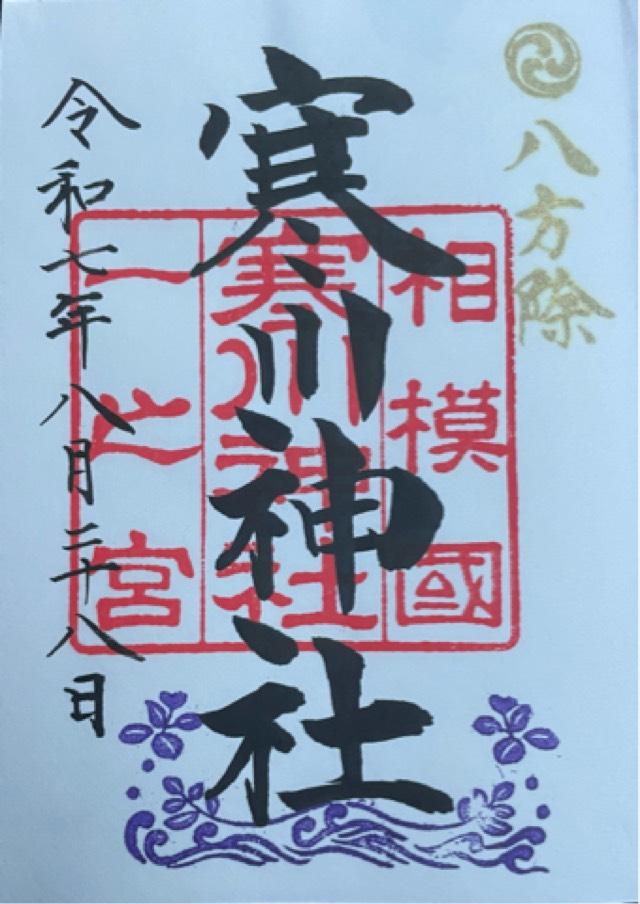 八方除
寒川神社
相模國
寒川神社
一之宮
令和七年八月二十八日